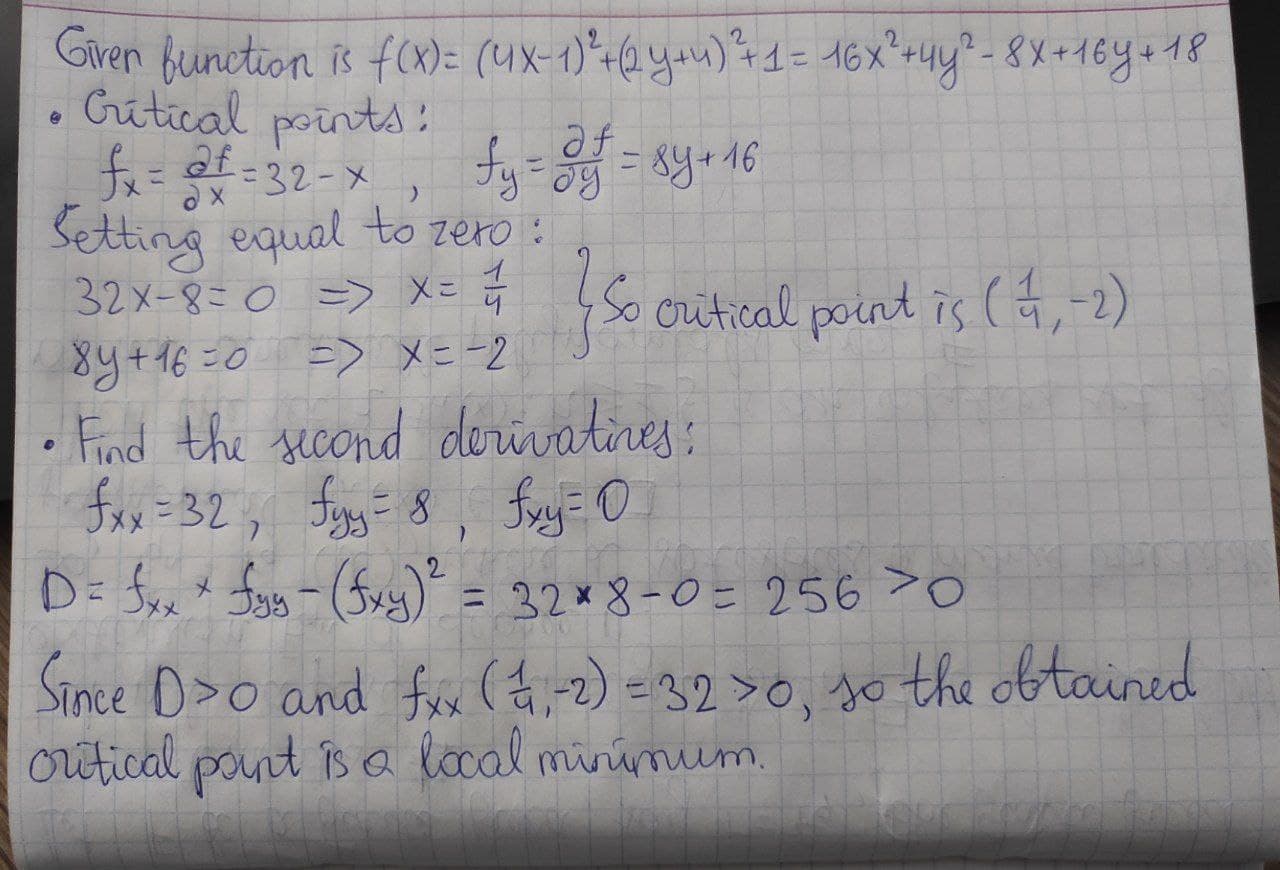 Given function is f(x)= (4x-1)²+(2y+4)²+1= 16x²+4y²-8x+16y+18
• Critical points:
fx = ∂f/∂x = 32-x , fy = ∂f/∂y = 8y+16
Setting equal to zero:
32x-8=0 => x= 1/4 } So critical point is (1/4, -2)
8y+16=0 => x=-2
• Find the second derivatives:
fxx=32, fyy=8, fxy=0
D= fxx * fyy-(fxy)² = 32*8-0= 256 >0
Since D>0 and fxx (1/4,-2) =32>0, so the obtained
critical point is a local minimum.